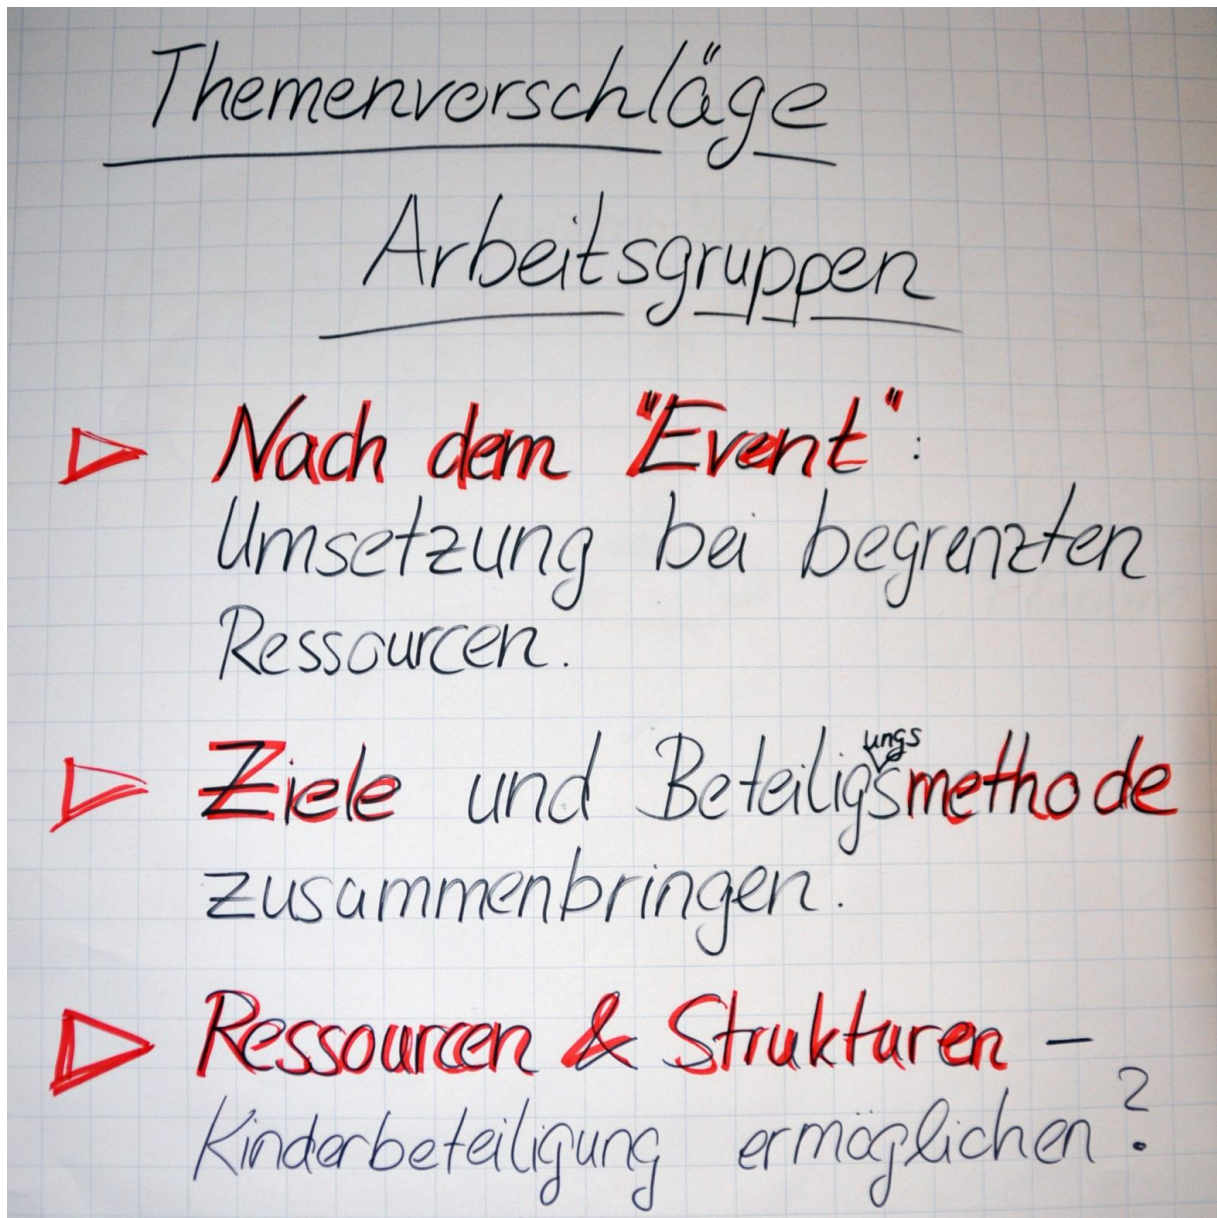 Themenvorschläge
Arbeitsgruppen
▷ Nach dem "Event":
Umsetzung bei begrenzten
Ressourcen.
▷ Ziele und Beteiligungsmethode
zusammenbringen.
▷ Ressourcen & Strukturen –
Kinderbeteiligung ermöglichen?